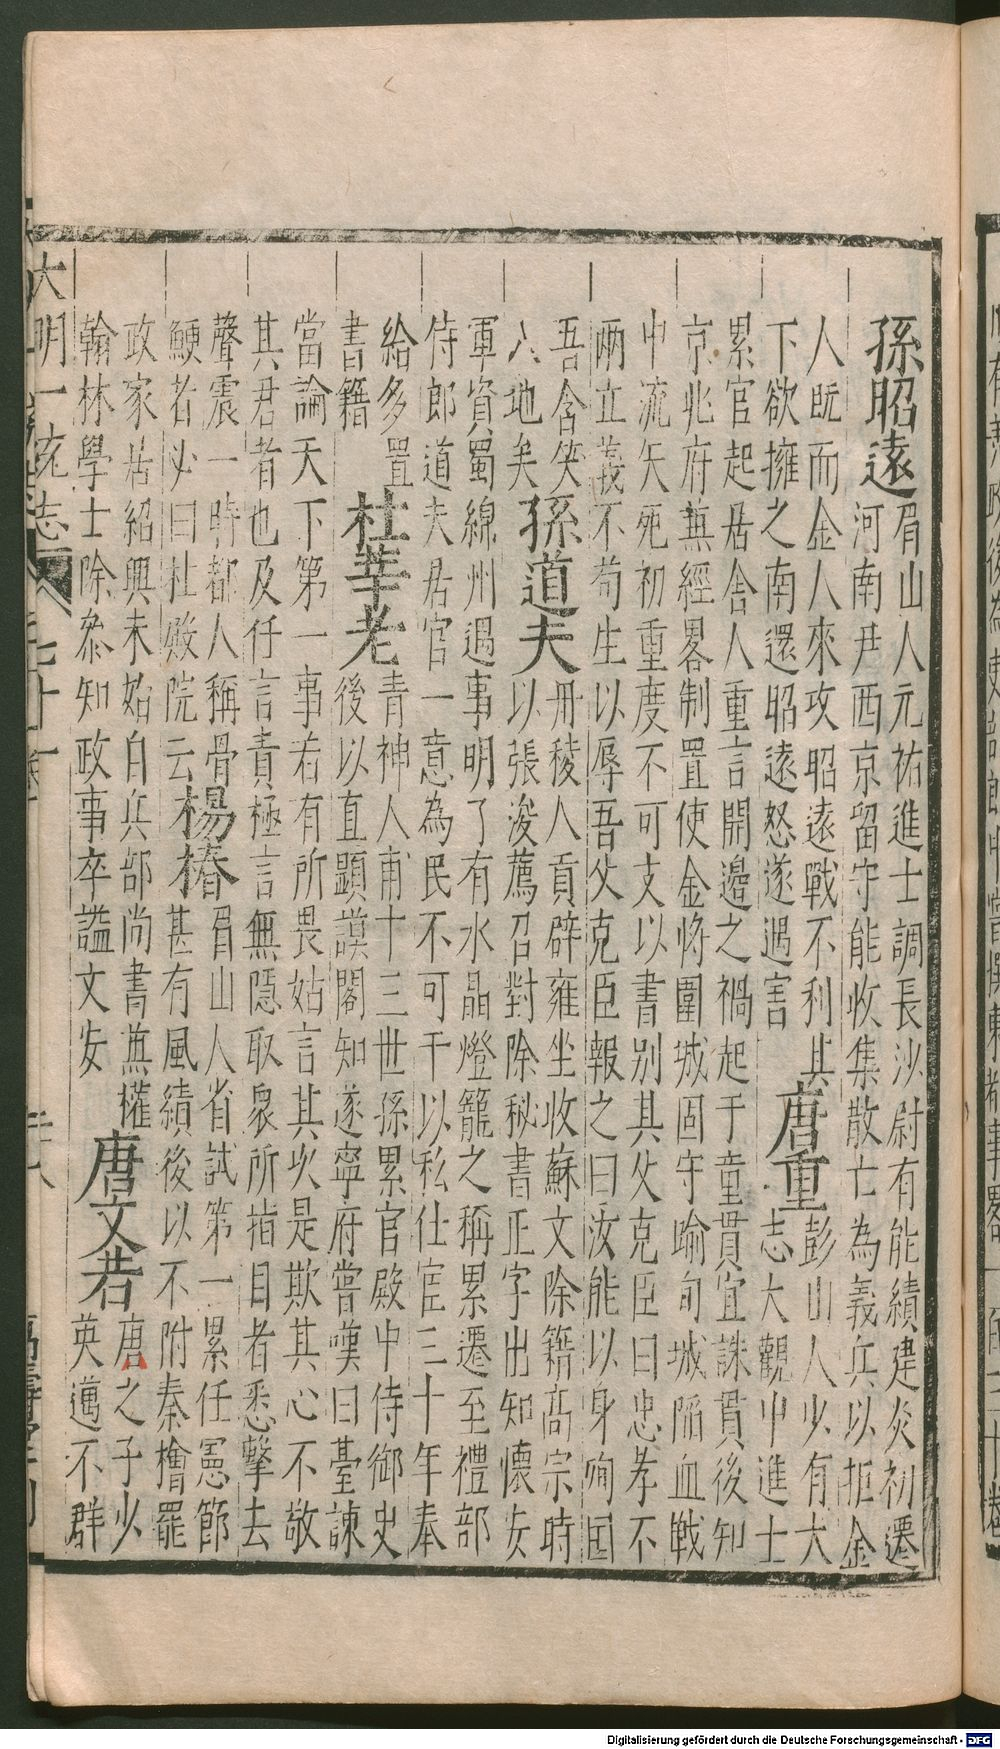 孫昭遠
眉山人元祐進士調長沙尉有能績建炎初遷
河南尹西京留守能收集散亡為義兵以拒金
人既而金人來攻昭遠戰不利其
下欲擁之南還昭遠怒遂遇害
唐重
彭山人少有大
志大觀中進士
累官起居舍人重言開邊之禍起于童貫宜誅貫後知
京兆府兼經畧制置使金將圍城固守喻旬城陷血戰
中流矢死初重度不可支以書别其父克臣曰忠孝不
兩立義不苟生以辱吾父克臣報之曰汝能以身殉国
吾含笑
入地矣
孫道夫
丹稜人貢辟雍坐收蘇文除籍高宗時
以張浚薦召對除秘書正字出知懷安
軍資蜀綿州遇事明了有水晶燈籠之稱累遷至禮部
侍郎道夫居官一意為民不可干以私仕宦三十年奉
給多置
書籍
杜莘老
青神人甫十三世孫累官殿中侍御史
後以直顯謨閣知遂寧府嘗嘆曰臺諫
當論天下第一事若有所畏姑言其次是欺其心不敬
其君者也及任言責極言無隱取衆所指目者悉擊去
聲震一時都人稱骨
鯁者必曰杜殿院云
楊椿
眉山人省試第一累任憲節
甚有風績後以不附秦檜罷
政家居紹興末始自兵部尚書兼權
翰林學士除叅知政事卒謚文安
唐文若
唐之子少
英邁不群
大明一統志 七十一 三十八
Digitalisierung gefördert durch die Deutsche Forschungsgemeinschaft - DFG